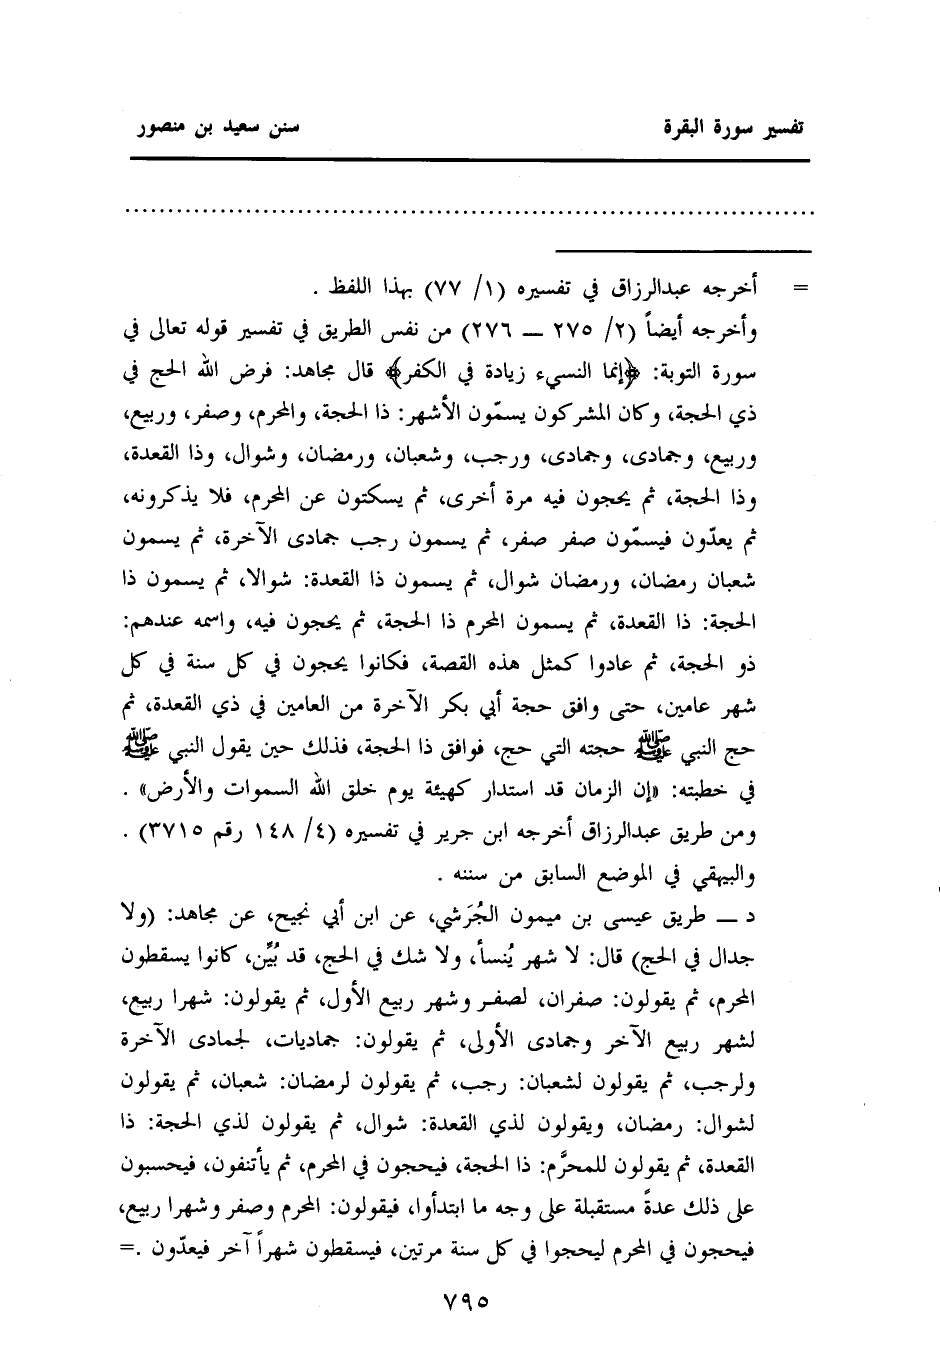 تفسير سورة البقرة سنن سعيد بن منصور
..........................................................................
= أخرجه عبدالرزاق في تفسيره (١/ ٧٧) بهذا اللفظ .
وأخرجه أيضاً (٢/ ٢٧٥ ـــ ٢٧٦) من نفس الطريق في تفسير قوله تعالى في
سورة التوبة: ﴿إنما النسيء زيادة في الكفر﴾ قال مجاهد: فرض الله الحج في
ذي الحجة، وكان المشركون يسمّون الأشهر: ذا الحجة، والمحرم، وصفر، وربيع،
وربيع، وجمادى، وجمادى، ورجب، وشعبان، ورمضان، وشوال، وذا القعدة،
وذا الحجة، ثم يحجون فيه مرة أخرى، ثم يسكتون عن المحرم، فلا يذكرونه،
ثم يعدّون فيسمّون صفر صفر، ثم يسمون رجب جمادى الآخرة، ثم يسمون
شعبان رمضان، ورمضان شوال، ثم يسمون ذا القعدة: شوالا، ثم يسمون ذا
الحجة: ذا القعدة، ثم يسمون المحرم ذا الحجة، ثم يحجون فيه، واسمه عندهم:
ذو الحجة، ثم عادوا كمثل هذه القصة، فكانوا يحجون في كل سنة في كل
شهر عامين، حتى وافق حجة أبي بكر الآخرة من العامين في ذي القعدة، ثم
حج النبي ﷺ حجته التي حج، فوافق ذا الحجة، فذلك حين يقول النبي ﷺ
في خطبته: «إن الزمان قد استدار كهيئة يوم خلق الله السموات والأرض» .
ومن طريق عبدالرزاق أخرجه ابن جرير في تفسيره (٤/ ١٤٨ رقم ٣٧١٥) .
والبيهقي في الموضع السابق من سننه .
د ـــ طريق عيسى بن ميمون الجُرَشي، عن ابن أبي نجيح، عن مجاهد: (ولا
جدال في الحج) قال: لا شهر يُنسأ، ولا شك في الحج، قد بُيِّن، كانوا يسقطون
المحرم، ثم يقولون: صفران، لصفر وشهر ربيع الأول، ثم يقولون: شهرا ربيع،
لشهر ربيع الآخر وجمادى الأولى، ثم يقولون: جماديات، لجمادى الآخرة
ولرجب، ثم يقولون لشعبان: رجب، ثم يقولون لرمضان: شعبان، ثم يقولون
لشوال: رمضان، ويقولون لذي القعدة: شوال، ثم يقولون لذي الحجة: ذا
القعدة، ثم يقولون للمحرَّم: ذا الحجة، فيحجون في المحرم، ثم يأتنفون، فيحسبون
على ذلك عدةً مستقبلة على وجه ما ابتدأوا، فيقولون: المحرم وصفر وشهرا ربيع،
فيحجون في المحرم ليحجوا في كل سنة مرتين، فيسقطون شهراً آخر فيعدّون .=
٧٩٥